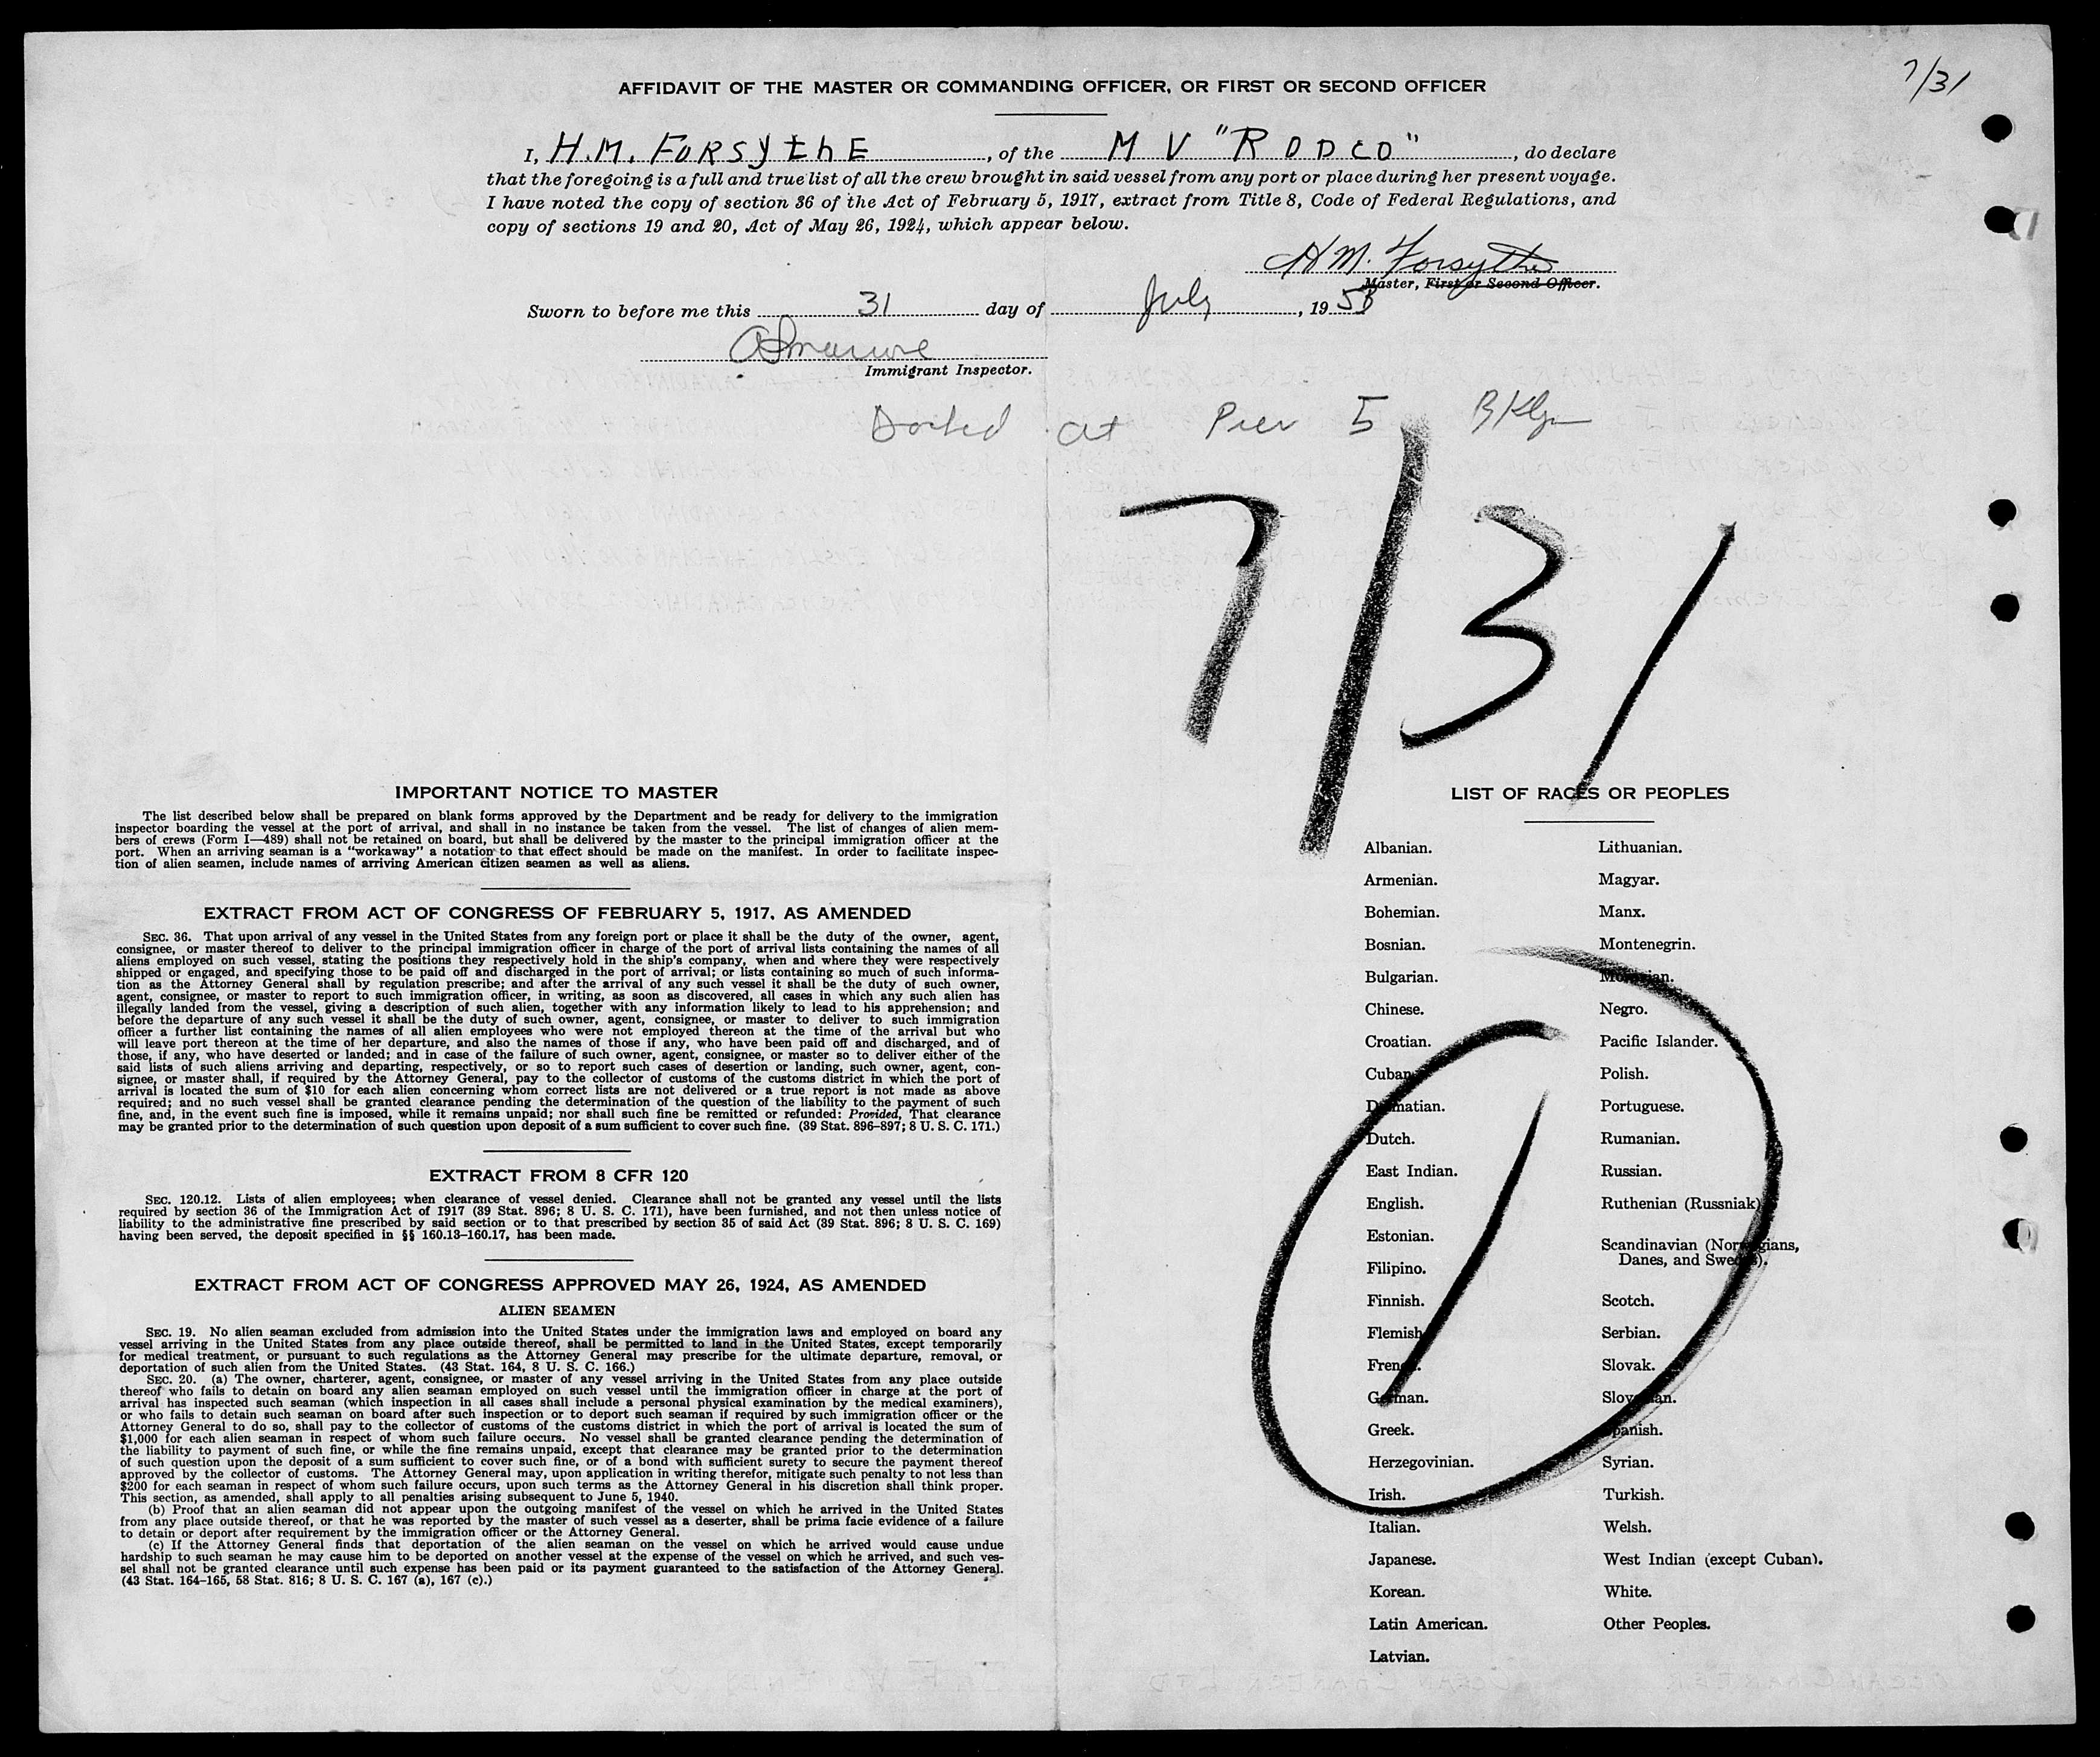 7/31
AFFIDAVIT OF THE MASTER OR COMMANDING OFFICER, OR FIRST OR SECOND OFFICER
I, H.M. FORSYthE, of the M V "RODCO", do declare
that the foregoing is a full and true list of all the crew brought in said vessel from any port or place during her present voyage.
I have noted the copy of section 36 of the Act of February 5, 1917, extract from Title 8, Code of Federal Regulations, and
copy of sections 19 and 20, Act of May 26, 1924, which appear below.
H M. Forsythe
Master, First or Second Officer.
Sworn to before me this 31 day of July, 19
Immigrant Inspector.
Docked at Pier 5 Bklyn
7/31
IMPORTANT NOTICE TO MASTER
The list described below shall be prepared on blank forms approved by the Department and be ready for delivery to the immigration
inspector boarding the vessel at the port of arrival, and shall in no instance be taken from the vessel. The list of changes of alien mem-
bers of crews (Form I—489) shall not be retained on board, but shall be delivered by the master to the principal immigration officer at the
port. When an arriving seaman is a "workaway" a notation to that effect should be made on the manifest. In order to facilitate inspec-
tion of alien seamen, include names of arriving American citizen seamen as well as aliens.
EXTRACT FROM ACT OF CONGRESS OF FEBRUARY 5, 1917, AS AMENDED
SEC. 36. That upon arrival of any vessel in the United States from any foreign port or place it shall be the duty of the owner, agent,
consignee, or master thereof to deliver to the principal immigration officer in charge of the port of arrival lists containing the names of all
aliens employed on such vessel, stating the positions they respectively hold in the ship's company, when and where they were respectively
shipped or engaged, and specifying those to be paid off and discharged in the port of arrival; or lists containing so much of such informa-
tion as the Attorney General shall by regulation prescribe; and after the arrival of any such vessel it shall be the duty of such owner,
agent, consignee, or master to report to such immigration officer, in writing, as soon as discovered, all cases in which any such alien has
illegally landed from the vessel, giving a description of such alien, together with any information likely to lead to his apprehension; and
before the departure of any such vessel it shall be the duty of such owner, agent, consignee, or master to deliver to such immigration
officer a further list containing the names of all alien employees who were not employed thereon at the time of the arrival but who
will leave port thereon at the time of her departure, and also the names of those if any, who have been paid off and discharged, and of
those, if any, who have deserted or landed; and in case of the failure of such owner, agent, consignee, or master so to deliver either of the
said lists of such aliens arriving and departing, respectively, or so to report such cases of desertion or landing, such owner, agent, con-
signee, or master shall, if required by the Attorney General, pay to the collector of customs of the customs district in which the port of
arrival is located the sum of $10 for each alien concerning whom correct lists are not delivered or a true report is not made as above
required; and no such vessel shall be granted clearance pending the determination of the question of the liability to the payment of such
fine, and, in the event such fine is imposed, while it remains unpaid; nor shall such fine be remitted or refunded: Provided, That clearance
may be granted prior to the determination of such question upon deposit of a sum sufficient to cover such fine. (39 Stat. 896–897; 8 U. S. C. 171.)
EXTRACT FROM 8 CFR 120
SEC. 120.12. Lists of alien employees; when clearance of vessel denied. Clearance shall not be granted any vessel until the lists
required by section 36 of the Immigration Act of 1917 (39 Stat. 896; 8 U. S. C. 171), have been furnished, and not then unless notice of
liability to the administrative fine prescribed by said section or to that prescribed by section 35 of said Act (39 Stat. 896; 8 U. S. C. 169)
having been served, the deposit specified in §§ 160.13–160.17, has been made.
EXTRACT FROM ACT OF CONGRESS APPROVED MAY 26, 1924, AS AMENDED
ALIEN SEAMEN
SEC. 19. No alien seaman excluded from admission into the United States under the immigration laws and employed on board any
vessel arriving in the United States from any place outside thereof, shall be permitted to land in the United States, except temporarily
for medical treatment, or pursuant to such regulations as the Attorney General may prescribe for the ultimate departure, removal, or
deportation of such alien from the United States. (43 Stat. 164, 8 U. S. C. 166.)
SEC. 20. (a) The owner, charterer, agent, consignee, or master of any vessel arriving in the United States from any place outside
thereof who fails to detain on board any alien seaman employed on such vessel until the immigration officer in charge at the port of
arrival has inspected such seaman (which inspection in all cases shall include a personal physical examination by the medical examiners),
or who fails to detain such seaman on board after such inspection or to deport such seaman if required by such immigration officer or the
Attorney General to do so, shall pay to the collector of customs of the customs district in which the port of arrival is located the sum of
$1,000 for each alien seaman in respect of whom such failure occurs. No vessel shall be granted clearance pending the determination of
the liability to payment of such fine, or while the fine remains unpaid, except that clearance may be granted prior to the determination
of such question upon the deposit of a sum sufficient to cover such fine, or of a bond with sufficient surety to secure the payment thereof
approved by the collector of customs. The Attorney General may, upon application in writing therefor, mitigate such penalty to not less than
$200 for each seaman in respect of whom such failure occurs, upon such terms as the Attorney General in his discretion shall think proper.
This section, as amended, shall apply to all penalties arising subsequent to June 5, 1940.
(b) Proof that an alien seaman did not appear upon the outgoing manifest of the vessel on which he arrived in the United States
from any place outside thereof, or that he was reported by the master of such vessel as a deserter, shall be prima facie evidence of a failure
to detain or deport after requirement by the immigration officer or the Attorney General.
(c) If the Attorney General finds that deportation of the alien seaman on the vessel on which he arrived would cause undue
hardship to such seaman he may cause him to be deported on another vessel at the expense of the vessel on which he arrived, and such ves-
sel shall not be granted clearance until such expense has been paid or its payment guaranteed to the satisfaction of the Attorney General.
(43 Stat. 164–165, 58 Stat. 816; 8 U. S. C. 167 (a), 167 (c).)
LIST OF RACES OR PEOPLES
Albanian.
Armenian.
Bohemian.
Bosnian.
Bulgarian.
Chinese.
Croatian.
Cuban.
Dalmatian.
Dutch.
East Indian.
English.
Estonian.
Filipino.
Finnish.
Flemish.
French.
German.
Greek.
Herzegovinian.
Irish.
Italian.
Japanese.
Korean.
Latin American.
Latvian.
Lithuanian.
Magyar.
Manx.
Montenegrin.
Moravian.
Negro.
Pacific Islander.
Polish.
Portuguese.
Rumanian.
Russian.
Ruthenian (Russniak).
Scandinavian (Norwegians,
Danes, and Swedes).
Scotch.
Serbian.
Slovak.
Slovenian.
Spanish.
Syrian.
Turkish.
Welsh.
West Indian (except Cuban).
White.
Other Peoples.
1